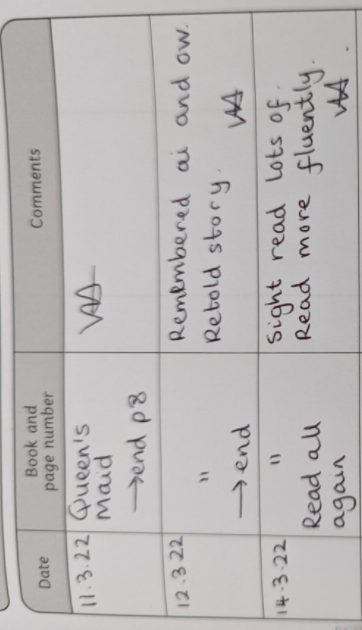 Date
Book and
page number
Comments
11.3.22
Queen's
Maid
→end p8
12.3.22
"
→end
Remembered ai and ow.
Retold story.
14.3.22
"
Read all
again
Sight read lots of.
Read more fluently.